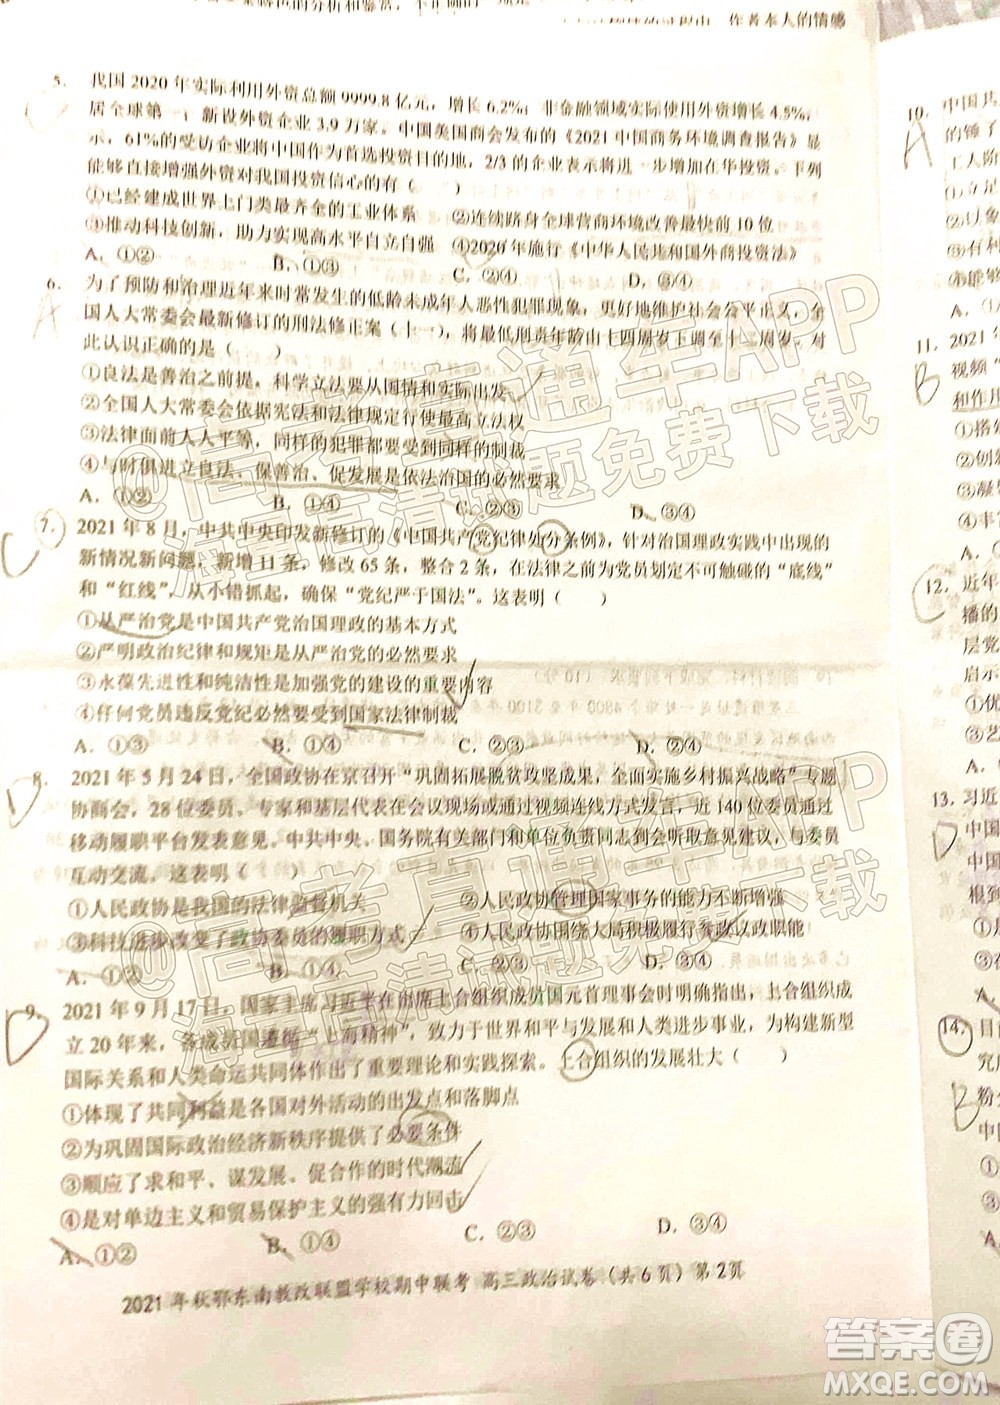 作者本人的情感
5. 我国2020年实际利用外资总额9999.8亿元，增长6.2%；非金融领域实际使用外资增长4.5%，
居全球第一；新设外资企业3.9万家。中国美国商会发布的《2021中国商务环境调查报告》显
示，61%的受访企业将中国作为首选投资目的地，2/3的企业表示将进一步增加在华投资。下列
能够直接增强外资对我国投资信心的有（ ）
①已经建成世界上门类最齐全的工业体系 ②连续跻身全球营商环境改善最快前10位
③推动科技创新，助力实现高水平自立自强 ④2020年施行《中华人民共和国外商投资法》
A．①② B．①③ C．②④ D．③④
6. 为了预防和治理近年来时常发生的低龄未成年人恶性犯罪现象，更好地维护社会公平正义，全
A
国人大常委会最新修订的刑法修正案（十一），将最低刑责年龄由十四周岁下调至十二周岁。对
此认识正确的是（ ）
①良法是善治之前提，科学立法要从国情和实际出发
②全国人大常委会依据宪法和法律规定行使最高立法权
③法律面前人人平等，同样的犯罪都要受到同样的制裁
④与时俱进立良法、保善治、促发展是依法治国的必然要求
A．①② B．①③ C．②③ D．③④
7. 2021年8月，中共中央印发新修订的《中国共产党纪律处分条例》，针对治国理政实践中出现的
C
新情况新问题，新增11条，修改65条，整合2条，在法律之前为党员划定不可触碰的“底线”
和“红线”，从小错抓起，确保“党纪严于国法”。这表明（ ）
①从严治党是中国共产党治国理政的基本方式
②严明政治纪律和规矩是从严治党的必然要求
③永葆先进性和纯洁性是加强党的建设的重要内容
④任何党员违反党纪必然要受到国家法律制裁
A．①③ B．①④ C．②③ D．②④
8. 2021年5月24日，全国政协在京召开“巩固拓展脱贫攻坚成果，全面实施乡村振兴战略”专题
D
协商会，28位委员、专家和基层代表在会议现场或通过视频连线方式发言，近140位委员通过
移动履职平台发表意见。中共中央、国务院有关部门和单位负责同志到会听取意见建议，与委员
互动交流，这表明（ ）
①人民政协是我国的法律监督机关 ②人民政协管理国家事务的能力不断增强
③科技进步改变了政协委员的履职方式 ④人民政协围绕大局积极履行参政议政职能
A．①② B．①③ C．②④ D．③④
9. 2021年9月17日，国家主席习近平在出席上合组织成员国元首理事会时明确指出，上合组织成
D
立20年来，各成员国遵循“上海精神”，致力于世界和平与发展、人类进步事业，为构建新型
国际关系和人类命运共同体作出了重要理论和实践探索。上合组织的发展壮大（ ）
①体现了共同利益是各国对外活动的出发点和落脚点
②为巩固国际政治经济新秩序提供了必要条件
③顺应了求和平、谋发展、促合作的时代潮流
④是对单边主义和贸易保护主义的强有力回击
A．①② B．①③ C．②③ D．③④
2021年秋鄂东南教改联盟学校期中联考 高三政治试卷（共6页）第2页
10. 中国共
A
的锤子
工人阶
①立足
②以象
③有利
④能够
A．①
11. 2021年
B
视频“
和作用
①搭
②创
③凝
④丰
A．①
12. 近年
C
播的
层党
启示
①优
③艺
A．①
13. 习近
D
中国
中国
根到
①
③在
A．
14. 目
B
究
粉
中国
①
②
③
④
A
@高考直通车APP
海量高清试题免费下载
@高考直通车APP
海量高清试题免费下载
答案圈
MXQE.COM